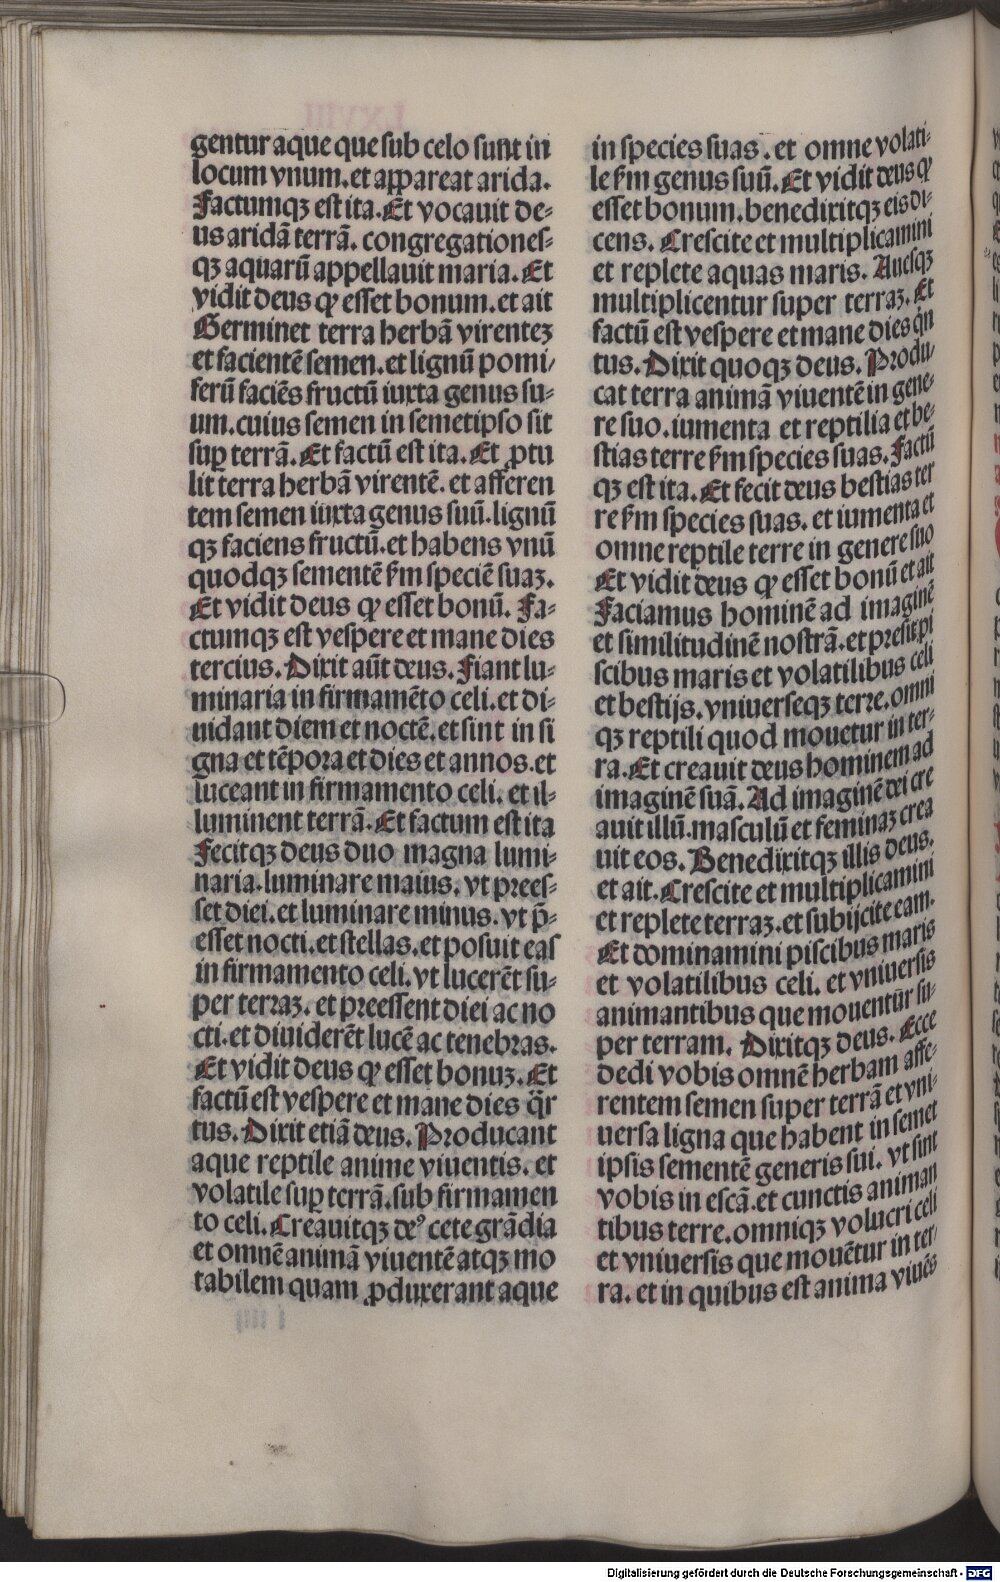 gentur aque que sub celo sunt in
locum vnum. et appareat arida.
Factumqꝫ est ita. Et vocauit de-
us aridā terrā. congregationes-
qꝫ aquarū appellauit maria. Et
vidit deus ꝙ esset bonum. et ait
Germinet terra herbā virenteꝫ
et facientē semen. et lignū pomi/
ferū faciēs fructū iuxta genus su-
um. cuius semen in semetipso sit
suꝑ terrā. Et factū est ita. Et ꝓtu
lit terra herbā virentē. et afferen
tem semen iuxta genus suū. lignū
qꝫ faciens fructū. et habens vnū
quodqꝫ sementē ẜm speciē suaꝫ.
Et vidit deus ꝙ esset bonū. Fa-
ctumqꝫ est vespere et mane dies
tercius. Dixit aūt deus. Fiant lu-
minaria in firmamēto celi. et di-
uidant diem et noctē. et sint in si
gna et tēpora et dies et annos. et
luceant in firmamento celi. et il-
luminent terrā. Et factum est ita
Fecitqꝫ deus duo magna lumi-
naria. luminare maius. vt prees-
set diei. et luminare minus. vt p̄-
esset nocti. et stellas. et posuit eas
in firmamento celi. vt lucerēt su-
per terraꝫ. et preessent diei ac no
cti. et diuiderēt lucē ac tenebras.
Et vidit deus ꝙ esset bonuꝫ. Et
factū est vespere et mane dies q̈r
tus. Dixit etiā deus. Producant
aque reptile anime viuentis. et
volatile suꝑ terrā. sub firmamen
to celi. Creauitqꝫ deꝰ cete grādia
et omnē animā viuentē atqꝫ mo
tabilem quam ꝓduxerant aque
in species suas. et omne volati-
le ẜm genus suū. Et vidit deus ꝙ
esset bonum. benedixitqꝫ eis di-
cens. Crescite et multiplicamini
et replete aquas maris. Auesqꝫ
multiplicentur super terraꝫ. Et
factū est vespere et mane dies q̇n
tus. Dixit quoqꝫ deus. Produ/
cat terra animā viuentē in gene-
re suo. iumenta et reptilia et be-
stias terre ẜm species suas. Factū
qꝫ est ita. Et fecit deus bestias ter
re ẜm species suas. et iumenta et
omne reptile terre in genere suo
Et vidit deus ꝙ esset bonū et ait
Faciamus hominē ad imaginē
et similitudinē nostrā. et presit pi
scibus maris et volatilibus celi
et bestijs. vniuerseqꝫ terre. omni
qꝫ reptili quod mouetur in ter-
ra. Et creauit deus hominem ad
imaginē suā. Ad imaginē dei cre
auit illū. masculū et feminaꝫ crea
uit eos. Benedixitqꝫ illis deus.
et ait. Crescite et multiplicamini
et replete terraꝫ. et subijcite eam.
Et dominamini piscibus maris
et volatilibus celi. et vniuersis
animantibus que mouentur su-
per terram. Dixitqꝫ deus. Ecce
dedi vobis omnē herbam affe-
rentem semen super terrā et vni-
uersa ligna que habent in semet
ipsis sementē generis sui. vt sint
vobis in escā. et cunctis animan
tibus terre. omniqꝫ volucri celi
et vniuersis que mouētur in ter/
ra. et in quibus est anima viuēs
Digitalisierung gefördert durch die Deutsche Forschungsgemeinschaft - DFG